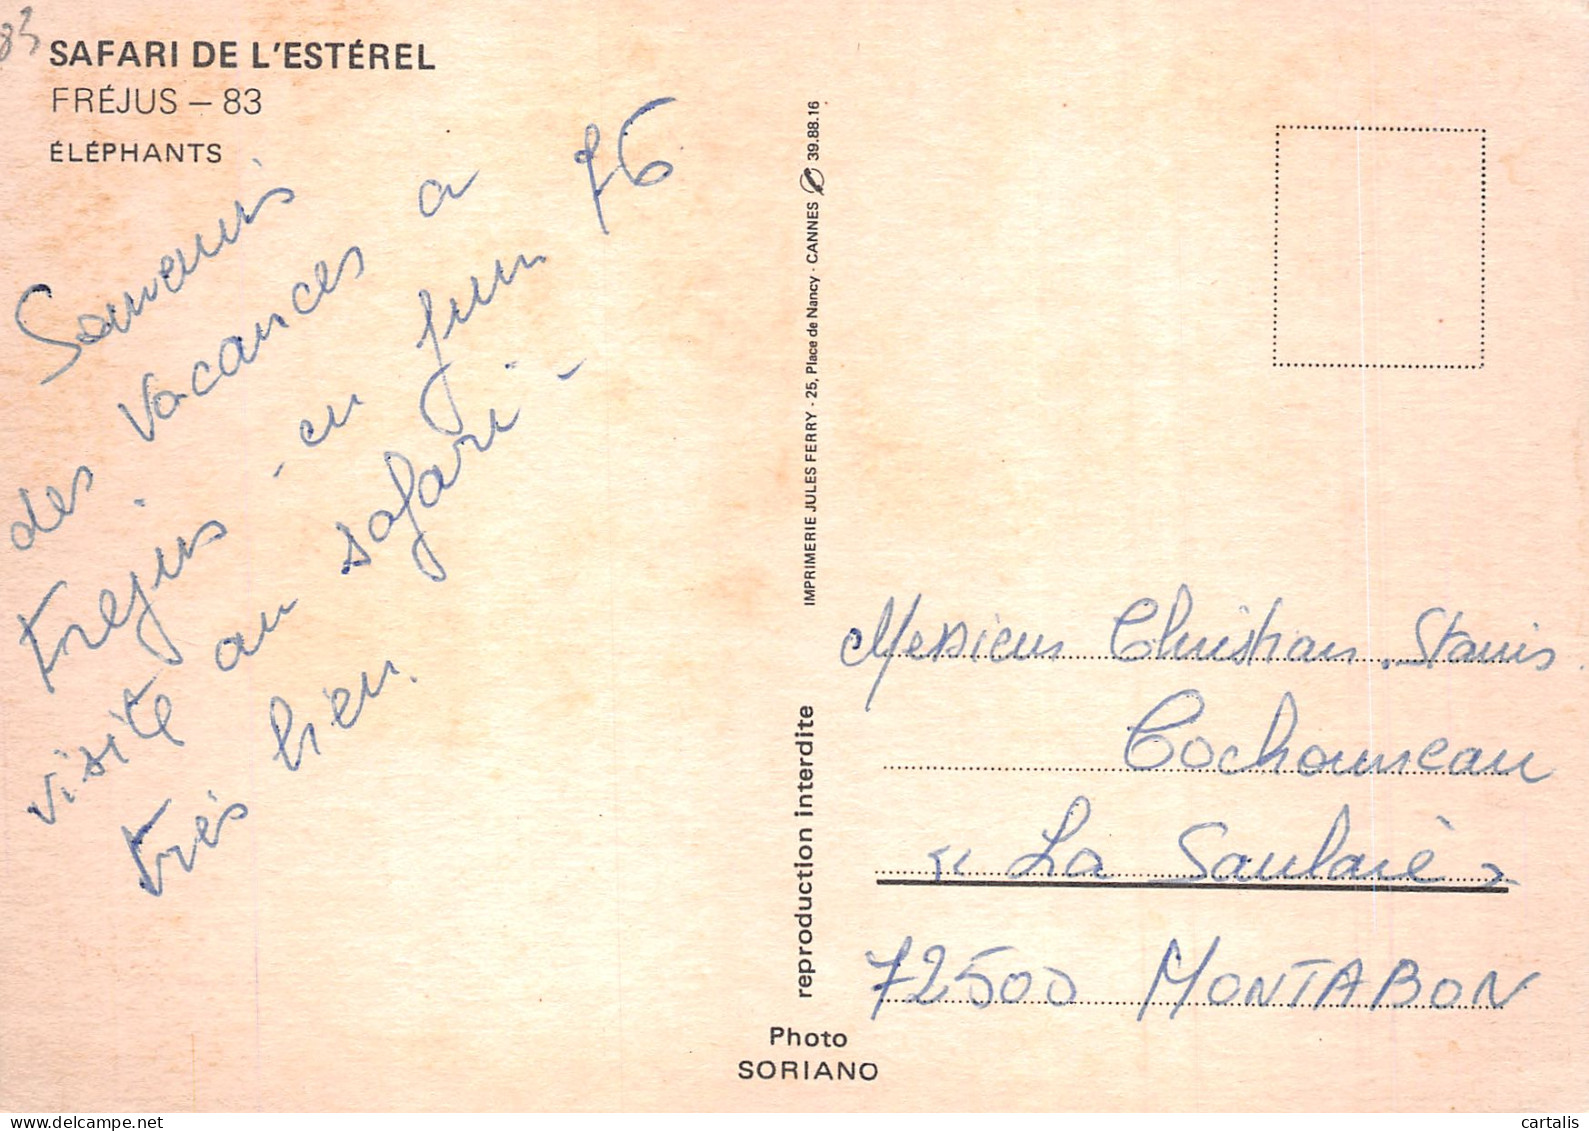 83
SAFARI DE L'ESTÉREL
FRÉJUS — 83
ÉLÉPHANTS
Souvenirs
des vacances a
Frejus - en juin 76
visite au safari -
très bien.
IMPRIMERIE JULES FERRY - 25, Place de Nancy - CANNES 39.88.16
reproduction interdite
Photo
SORIANO
Messieurs Christian. Stanis.
Cochonneau
« La Saulaie »
72500 MONTABON
delcampe.net
cartalis